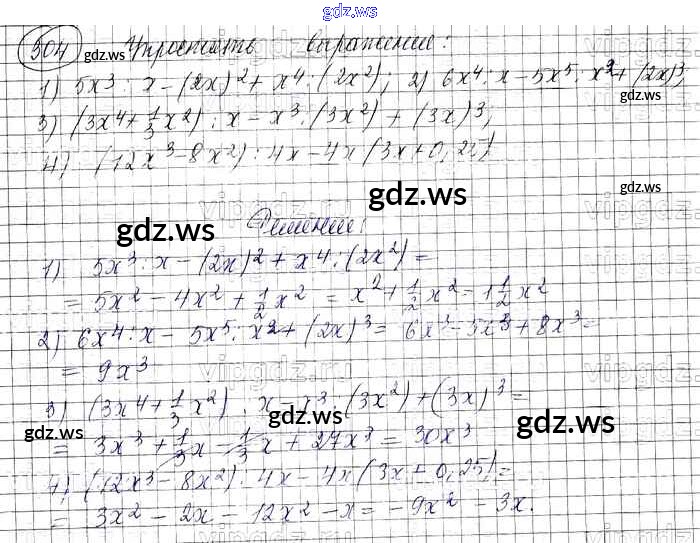 gdz.ws
304 Упростить выражение:
1) 5x³ : x - (2x)² + x⁴ : (2x²); 2) 6x⁴ : x - 5x⁵ : x² + (2x)³;
3) (3x⁴ + 1/3 x²) : x - x³ : (3x²) + (3x)³;
4) (12x³ - 8x²) : 4x - 4x (3x + 0,25)
Решение:
1) 5x³ : x - (2x)² + x⁴ : (2x²) =
= 5x² - 4x² + 1/2 x² = x² + 1/2 x² = 1 1/2 x²
2) 6x⁴ : x - 5x⁵ : x² + (2x)³ = 6x³ - 5x³ + 8x³ =
= 9x³
3) (3x⁴ + 1/3 x²) : x - x³ : (3x²) + (3x)³ =
= 3x³ + 1/3 x - 1/3 x + 27x³ = 30x³
4) (12x³ - 8x²) : 4x - 4x (3x + 0,25) =
= 3x² - 2x - 12x² - x = -9x² - 3x.
gdz.ws
gdz.ws
gdz.ws
gdz.ws
gdz.ws
gdz.ws
gdz.ws
gdz.ws
gdz.ws
gdz.ws